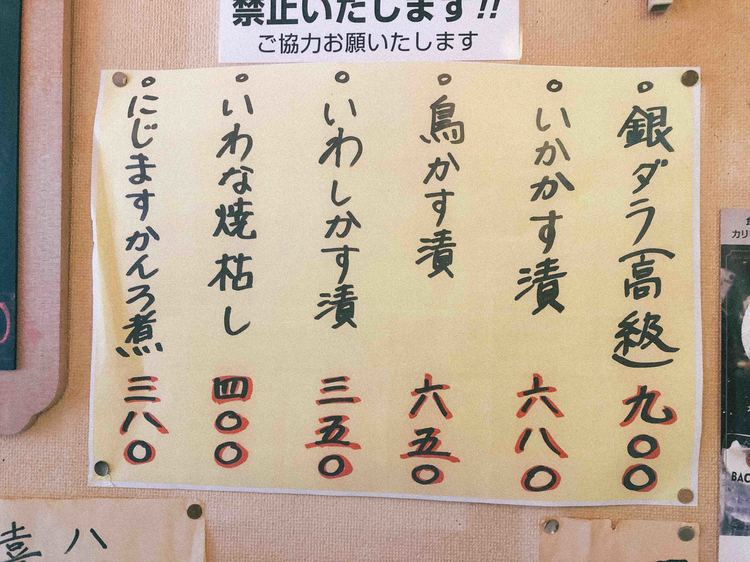 禁止いたします!!
ご協力お願いいたします
。銀ダラ(高級) 九〇〇
。いかかす漬 六八〇
。鳥かす漬 六五〇
。いわしかす漬 三五〇
。いわな焼枯し 四〇〇
。にじますかんろ煮 三八〇
カリ
BAC
八
喜